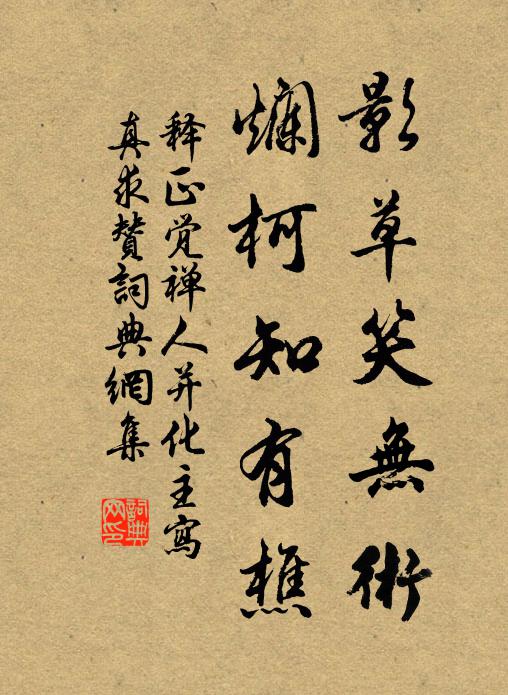 影草笑無術
爛柯知有樵
释正觉禅人并化主寫
真求贊詞典網集
詞典
网印